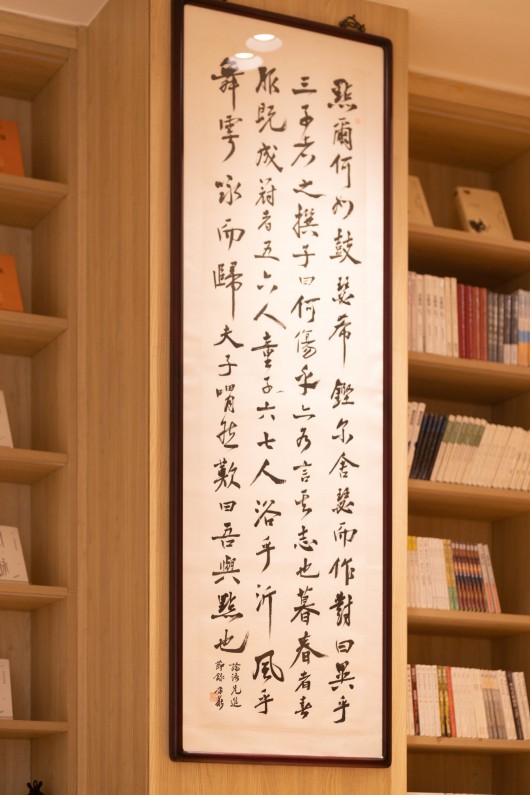 點爾何如鼓瑟希鏗尔舍瑟而作對曰異乎
三子者之撰子曰何傷乎亦各言其志也暮春者春
服既成冠者五六人童子六七人浴乎沂風乎
舞雩咏而歸夫子喟然歎曰吾與點也
論語先進
節錄